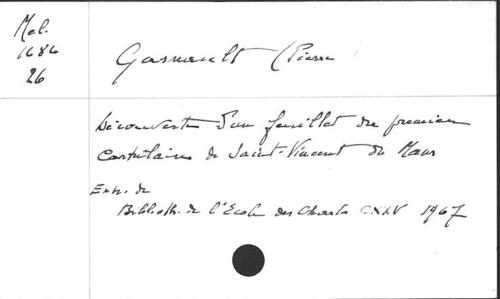 Mel.
1686
26
Gasnault (Pierre
Découverte d'un feuillet du premier
Cartulaire de Saint-Vincent du Mans
Extr. de
Biblioth. de l'Ecole des Chartes CXXV 1967